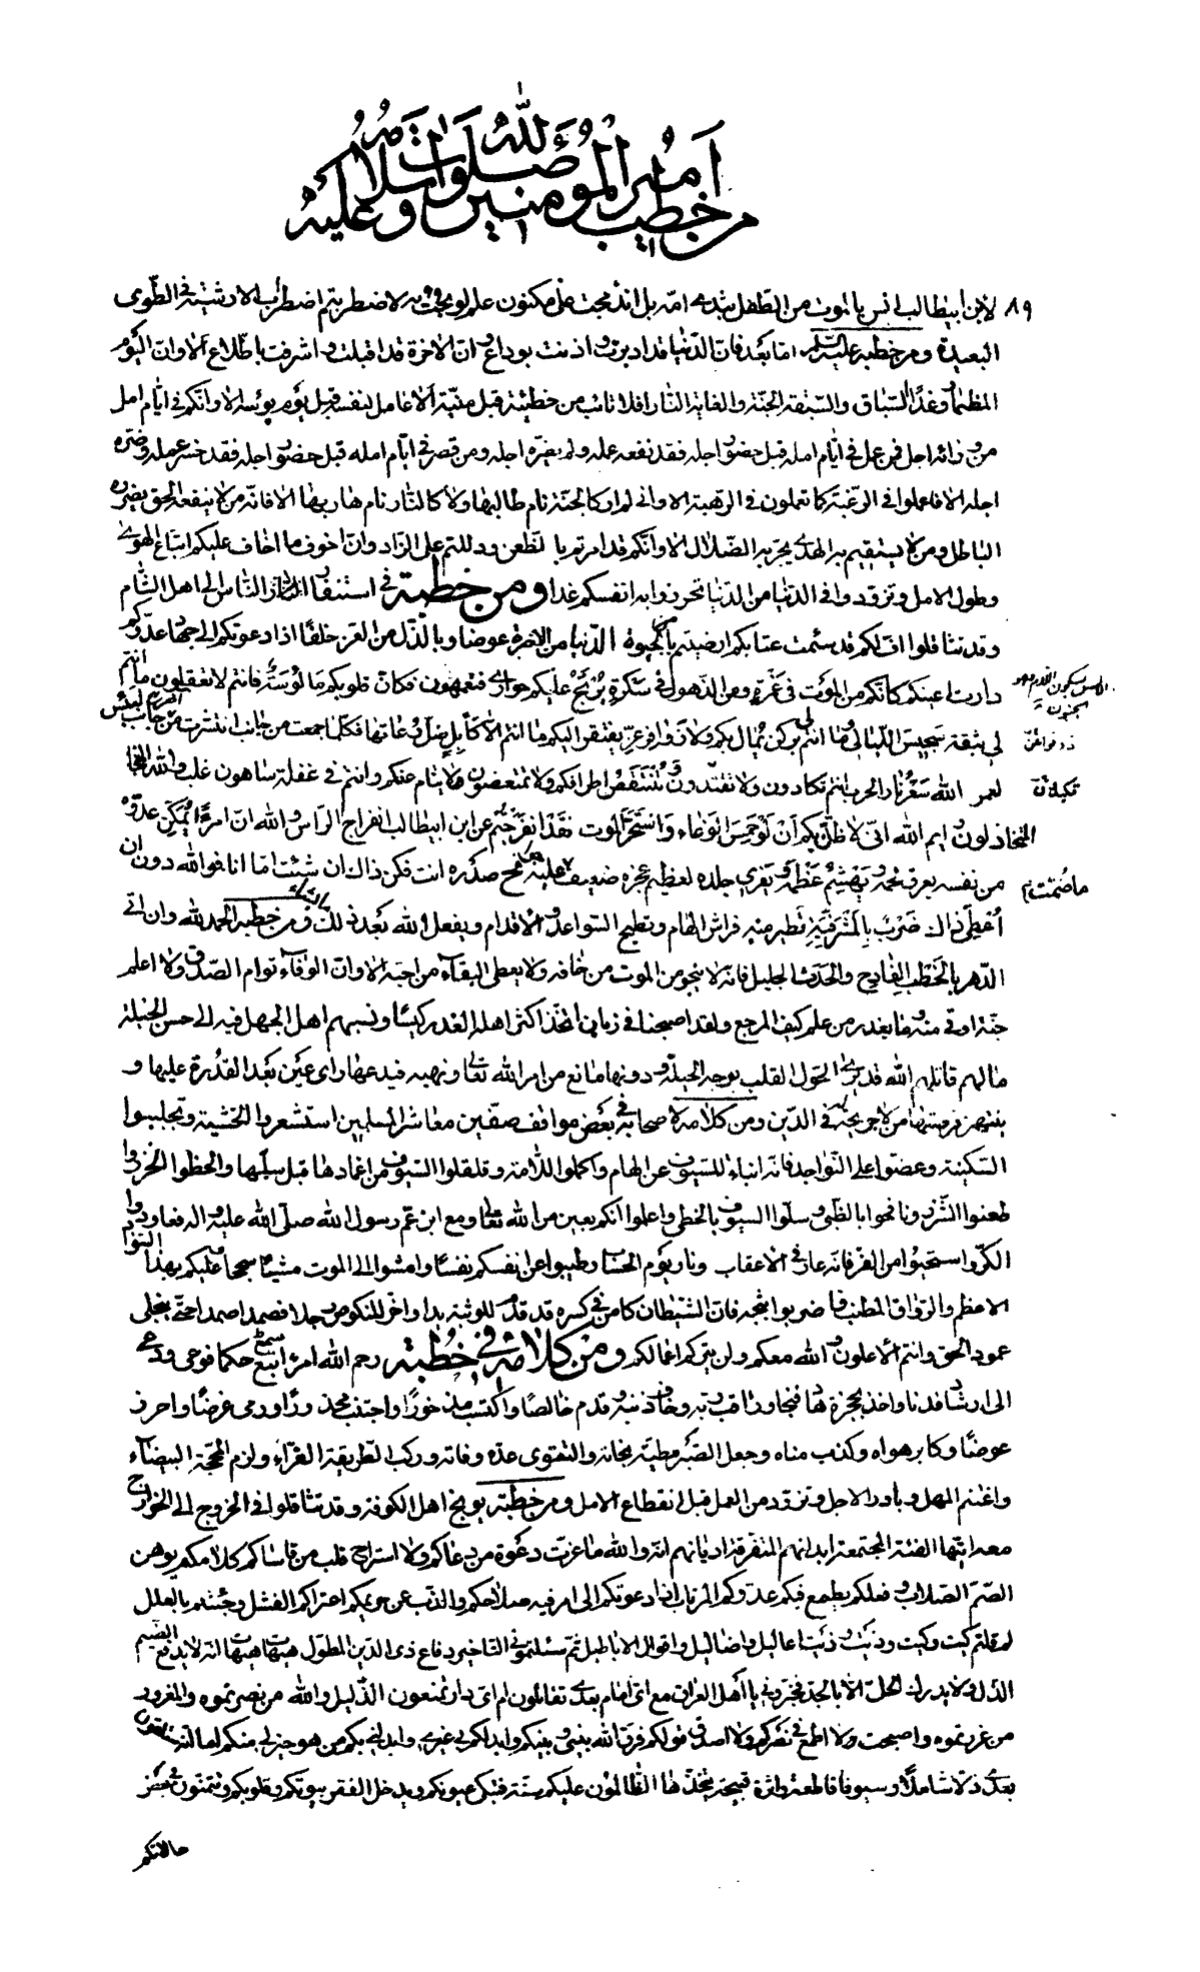 من خطب أمير المؤمنين صلوات الله وسلامه عليه
٨٩ لابن ابيطالب انس بالموت من الطفل بثدى امّه بل اندمجت على مكنون علم لو بحت به لاضطربتم اضطراب الارشية فى الطّوى
البعيدة ومن خطبة امّا بعد فان الدّنيا قد ادبرت واذنت بوداع وانّ الاخرة قد اقبلت واشرفت باطّلاع الا وانّ اليوم
المضمار وغدًا السّباق والسّبقة الجنّة والغاية النّار افلا تائب من خطيئته قبل منيّته الا عامل لنفسه قبل يوم بؤسه الا وانّكم فى ايّام امل
من ورائه اجل فمن عمل فى ايّام امله قبل حضور اجله فقد نفعه عمله ولم يضرّه اجله ومن قصر فى ايّام امله قبل حضور اجله فقد خسر عمله وضرّه
اجله الا فاعملوا فى الرّغبة كما تعملون فى الرّهبة الا وانى لم ار كالجنّة نام طالبها ولا كالنّار نام هاربها الا فانّه من لا ينفعه الحق يضرّه
الباطل ومن لا يستقيم به الهدى يجرّ به الضّلال الا وانّكم قد امرتم بالظعن ودللتم على الزّاد وانّ اخوف ما اخاف عليكم اتباع الهوى
وطول الامل وتزوّدوا فى الدّنيا من الدنيا ما تحرزون به انفسكم غدا ومن خطبة فى استنفار النّاس الى اهل الشّام
وقد تثاقلوا افّ لكم قد سئمت عتابكم ارضيتم بالحيوة الدّنيا من الاخرة عوضا وبالذّل من العز خلفًا اذا دعوتكم الى جهاد عدّوكم
دارت اعينكم كانّكم من الموت فى غمرة ومن الذهول فى سكرة يرتج عليكم حوارى فتعمهون فكانّ قلوبكم مالوسة فانتم لا تعقلون ما انتم
لى بثقة سجيس اللّيالى وما انتم بركن يمال بكم ولا زوافر عزّ يفتقر اليكم ما انتم الا كابل ضلّ رعاتها فكلّما جمعت من جانب انتشرت من جانب
لعمر الله سعر نار الحرب انتم تكادون ولا تكيدون وتنتقص اطرافكم ولا تمتعضون لا ينام عنكم وانتم فى غفلة ساهون غلب والله
المتخاذلون وايم الله انّى لاظنّ بكم ان لو حمس الوغاء واستحرّ الموت قد انفرجتم عن ابن ابيطالب انفراج الرّأس والله انّ امرءًا يمكّن عدوّه
من نفسه يعرق لحمه ويهشم عظمه ويفرى جلده لعظيم عجزه ضعيف ما ضمّت عليه جوانح صدره انت فكن ذاك ان شئت امّا انا فوالله دون ان
اعطى ذاك ضرب بالمشرفيّة تطير منه فراش الهام وتطيح السّواعد والاقدام ويفعل الله بعد ذلك ما يشاء ومن خطبة الحمد لله وان اتى
الدّهر بالخطب الفادح والحدث الجليل فانّه لا ينجو من الموت من خافه ولا يعطى البقاء من احبّه الا وانّ الوفاء توأم الصّدق ولا اعلم
جنّة اوقى منه وما يغدر من علم كيف المرجع ولقد اصبحنا فى زمان اتّخذ اكثر اهله الغدر كيسًا ونسبهم اهل الجهل فيه الى حسن الحيلة
مالهم قاتلهم الله قد يرى الحوّل القلّب وجه الحيلة ودونها مانع من امر الله تعالى ونهيه فيدعها رأى عين بعد القدرة عليها و
ينتهز فرصتها من لا حريجة له فى الدّين ومن كلامه لاصحابه فى بعض مواقف صفّين معاشر المسلمين استشعروا الخشية وتجلببوا
السّكينة وعضّوا على النّواجذ فانّه انباء للسّيوف عن الهام واكملوا اللّأمة وقلقلوا السّيوف من اغمادها قبل سلّها والحظوا الخزر وا
طعنوا الشّزر ونافحوا بالظّبى وصلوا السيوف بالخطى واعلموا انّكم بعين من الله تعالى ومع ابن عم رسول الله صلّى الله عليه واله فعاودوا
الكرّ واستحيوا من الفرّ فانّه عار فى الاعقاب ونار يوم الحساب وطيبوا عن انفسكم نفسًا وامشوا الى الموت مشيًا سجحا عليكم بهذا السّواد
الاعظم والرّواق المطنب فاضربوا ثبجه فانّ الشّيطان كامن فى كسره قد قدّم للوثبة يدا واخّر للنّكوص رجلا فصمدا صمدا حتّى ينجلى
عمود الحق وانتم الاعلون والله معكم ولن يتركم اعمالكم ومن كلامه فى خطبة رحم الله امرءا سمع حكما فوعى ودعى
الى رشاد فدنا واخذ بحجزة هاد فنجا وراقب ربّه وخاف ذنبه وقدّم خالصًا واكتسب مذخورًا واجتنب محذورًا ورمى غرضًا واحرز
عوضًا وكابر هواه وكذب مناه وجعل الصّبر مطيّة نجاته والتّقوى عدّة وفاته وركب الطّريقة الغرّاء ولزم المحجّة البيضاء
واغتنم المهل وبادر الاجل وتزوّد من العمل قبل انقطاع الامل ومن خطبة يوبّخ اهل الكوفة وقد تثاقلوا فى الخروج الى الخوارج
معه ايّتها الفئة المجتمعة ابدانهم المتفرّقة اديانهم انّه والله ما عزّت دعوة من دعاكم ولا استراح قلب من قاساكم كلامكم يوهن
الصّم الصّلاب وفعلكم يطمع فيكم عدوّكم المرتاب اذا دعوتكم الى امر فيه صلاحكم والذّب عن حريمكم اعتراكم الفشل وجئتم بالعلل
ثم قلتم كيت وكيت وذيت وذيت اعاليل واضاليل واقوال الاباطيل ثمّ سئلتمونى التاخير دفاع ذى الدّين المطول هيهات هيهات انّه لا يدفع الضّيم
الذّل ولا يدرك الحق الّا بالجد فخبّرونى يا اهل العراق مع اى امام بعدى تقاتلون ام اىّ دار تمنعون الذّليل والله من نصرتموه والمغرور
من غررتموه واصبحت ولا اطمع فى نصركم ولا اصدّق قولكم فرّق الله بينى وبينكم وابدلكم بى غيرى وابدلنى بكم من هو خير لى منكم اما انّه ستلقون
بعدى ذلّا شاملًا وسيوفا قاطعة واثرة قبيحة يتّخذها الظّالمون عليكم سنّة فتبكى عيونكم ويدخل الفقر بيوتكم وقلوبكم وتتمنّون فى بعض
حالاتكم